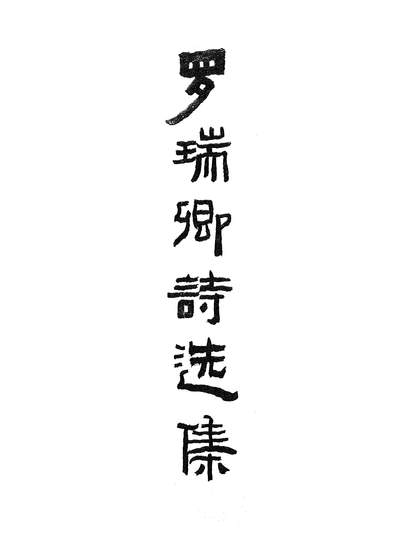 罗瑞卿詩选集